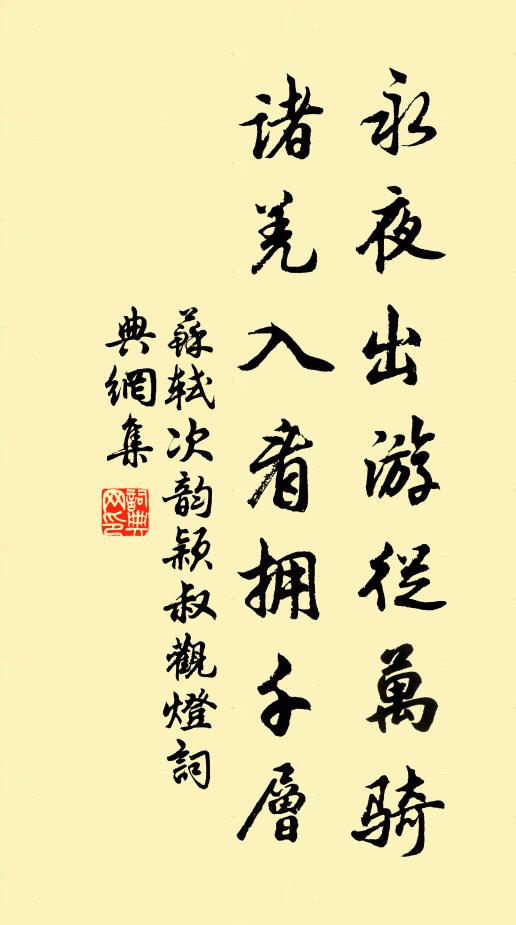 永夜出游從萬騎
諸羌入看擁千層
蘇軾次韵穎叔觀燈詞
典網集
詞典網印